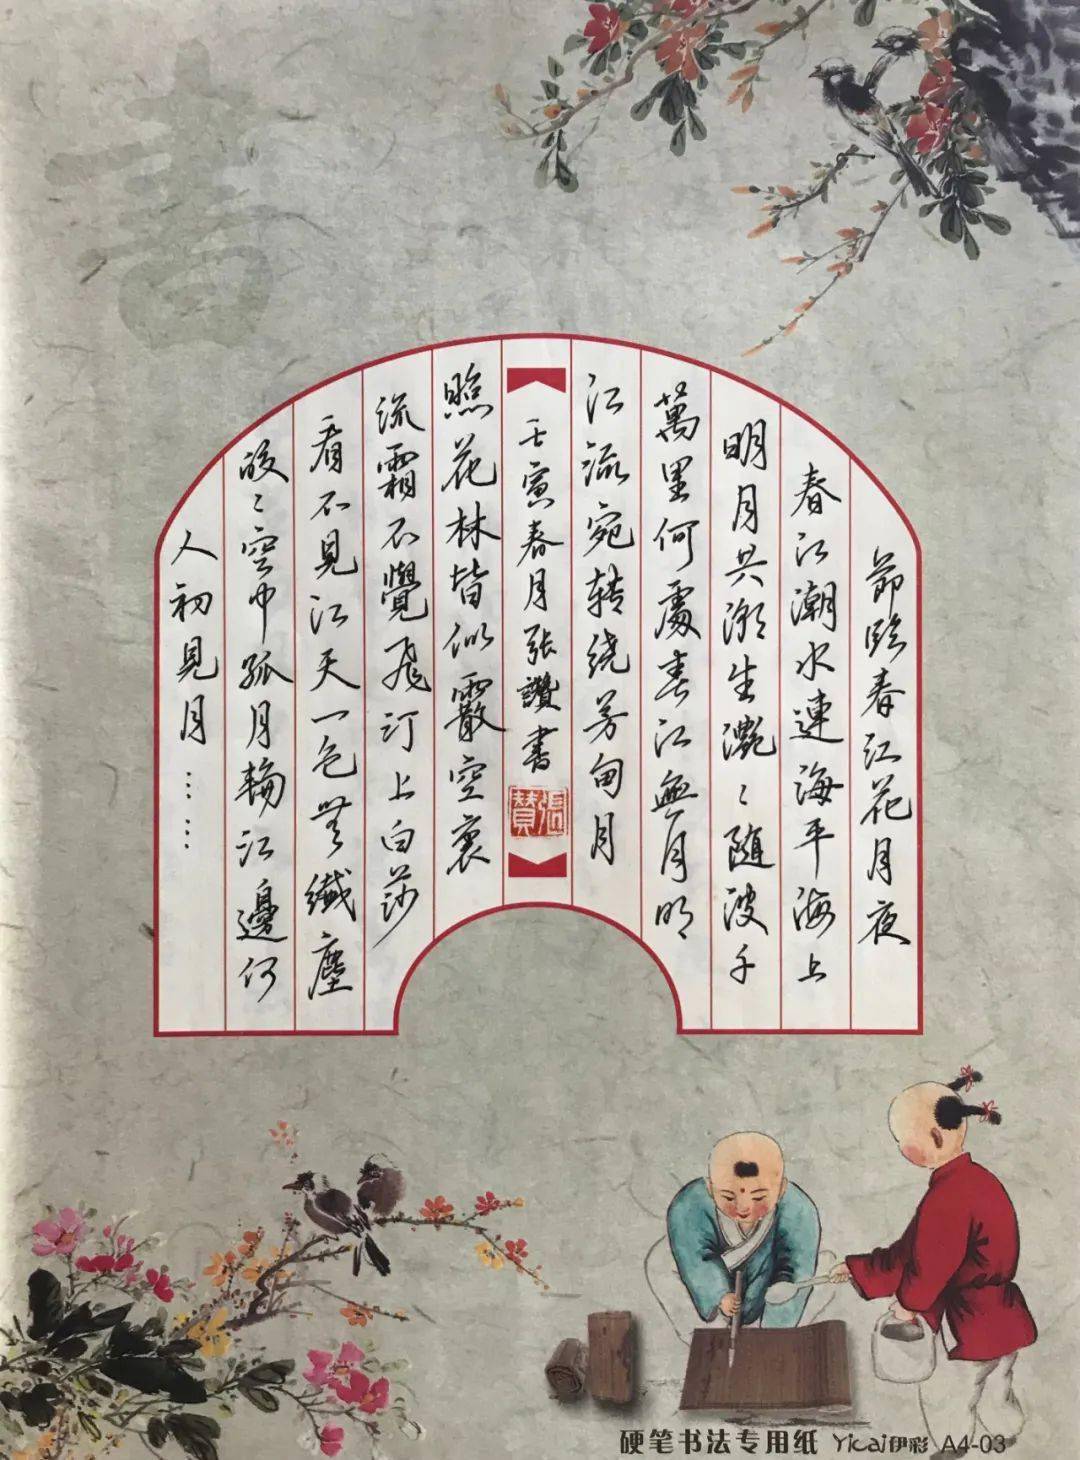 節临春江花月夜
春江潮水連海平海上
明月共潮生灩〻随波千
萬里何處春江無月明
江流宛转绕芳甸月
照花林皆似霰空裏
流霜不覺飛汀上白莎
看不見江天一色无纖塵
皎〻空中孤月輪江邊何
人初見月……
壬寅春月張讚書
張賛
書
硬笔书法专用纸 Yicai伊彩 A4-03